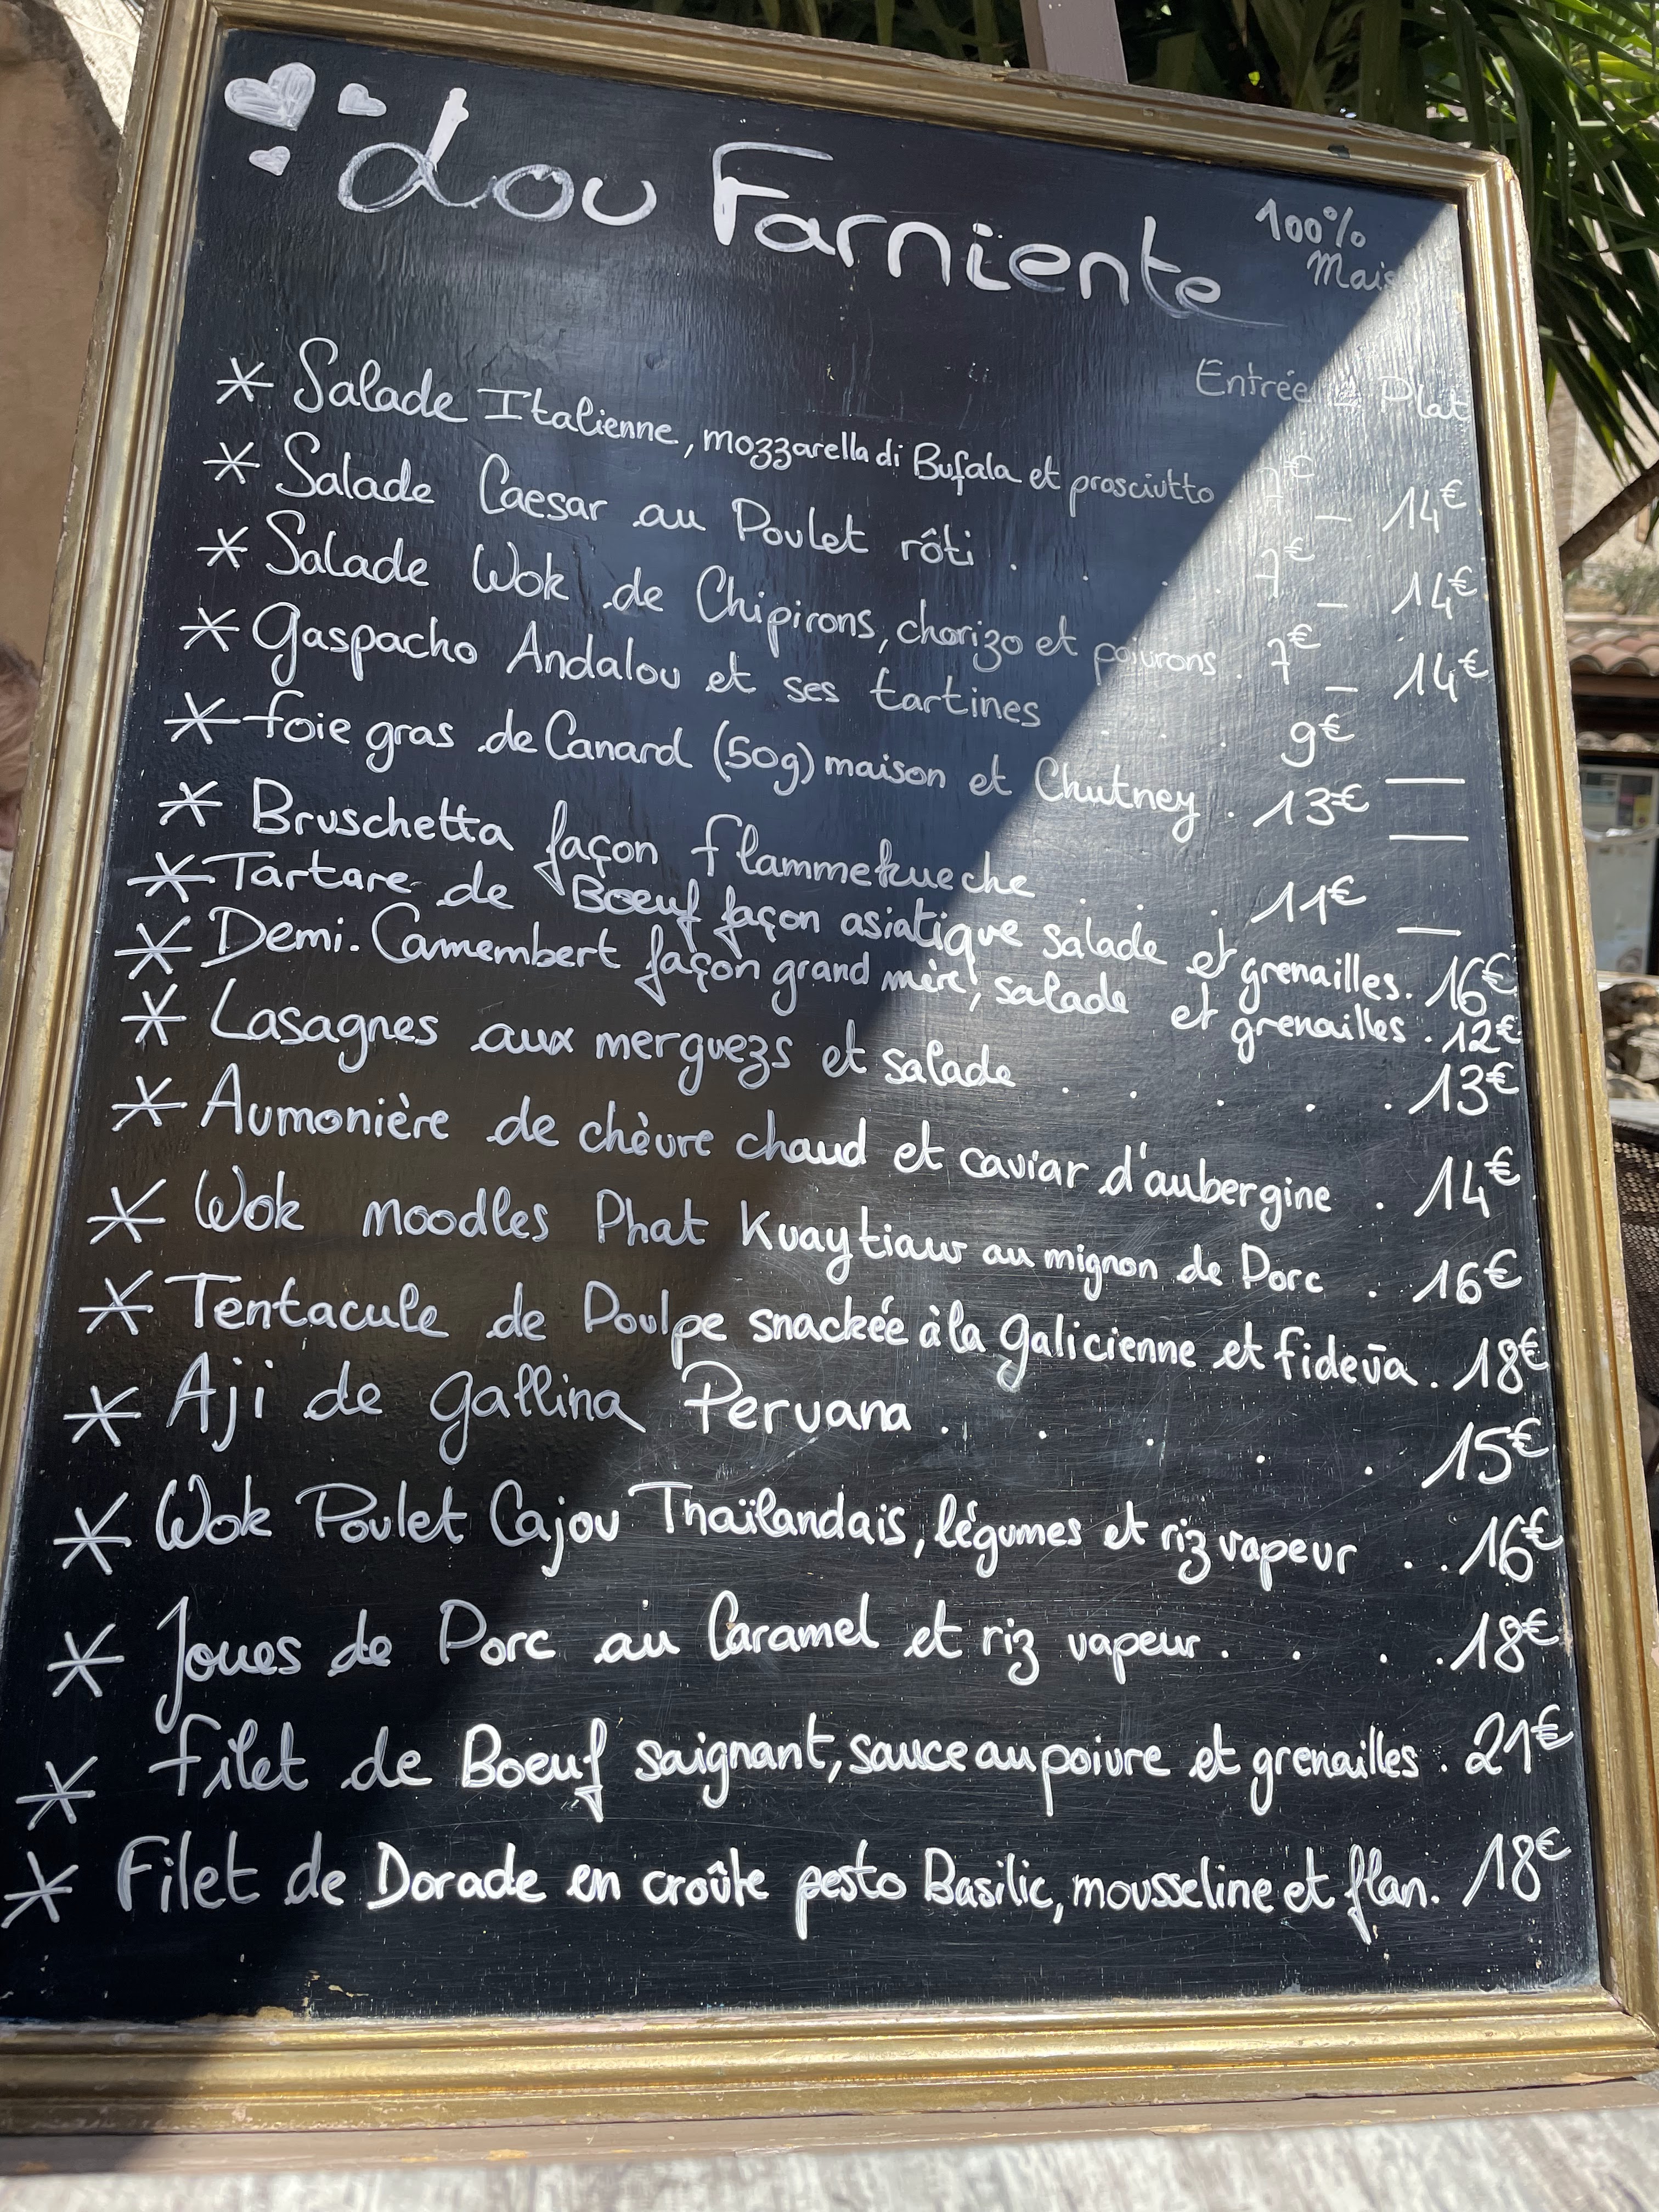 Lou Farniente
100%
Mais
Entrée & Plat
* Salade Italienne, mozzarella di Bufala et prosciutto 7€ - 14€
* Salade Caesar au Poulet rôti . . . . 7€ - 14€
* Salade Wok de Chipirons, chorizo et poivrons . 7€ - 14€
* Gaspacho Andalou et ses tartines . . . 9€ —
* foie gras de Canard (50g) maison et Chutney . 13€ —
* Bruschetta façon flammekueche . . . 11€ —
* Tartare de Boeuf façon asiatique salade et grenailles. 16€
* Demi-Camembert façon grand mère, salade et grenailles . 12€
* Lasagnes aux merguezs et salade . . . . . 13€
* Aumonière de chèvre chaud et caviar d'aubergine . 14€
* Wok noodles Phat Kuaytiaw au mignon de Porc . 16€
* Tentacule de Poulpe snackée à la galicienne et fideūa . 18€
* Aji de gallina Peruana . . . . . 15€
* Wok Poulet Cajou Thaïlandais, légumes et riz vapeur . . 16€
* Joues de Porc au Caramel et riz vapeur . . . . 18€
* filet de Boeuf saignant, sauce au poivre et grenailles . 21€
* Filet de Dorade en croûte pesto Basilic, mousseline et flan. 18€